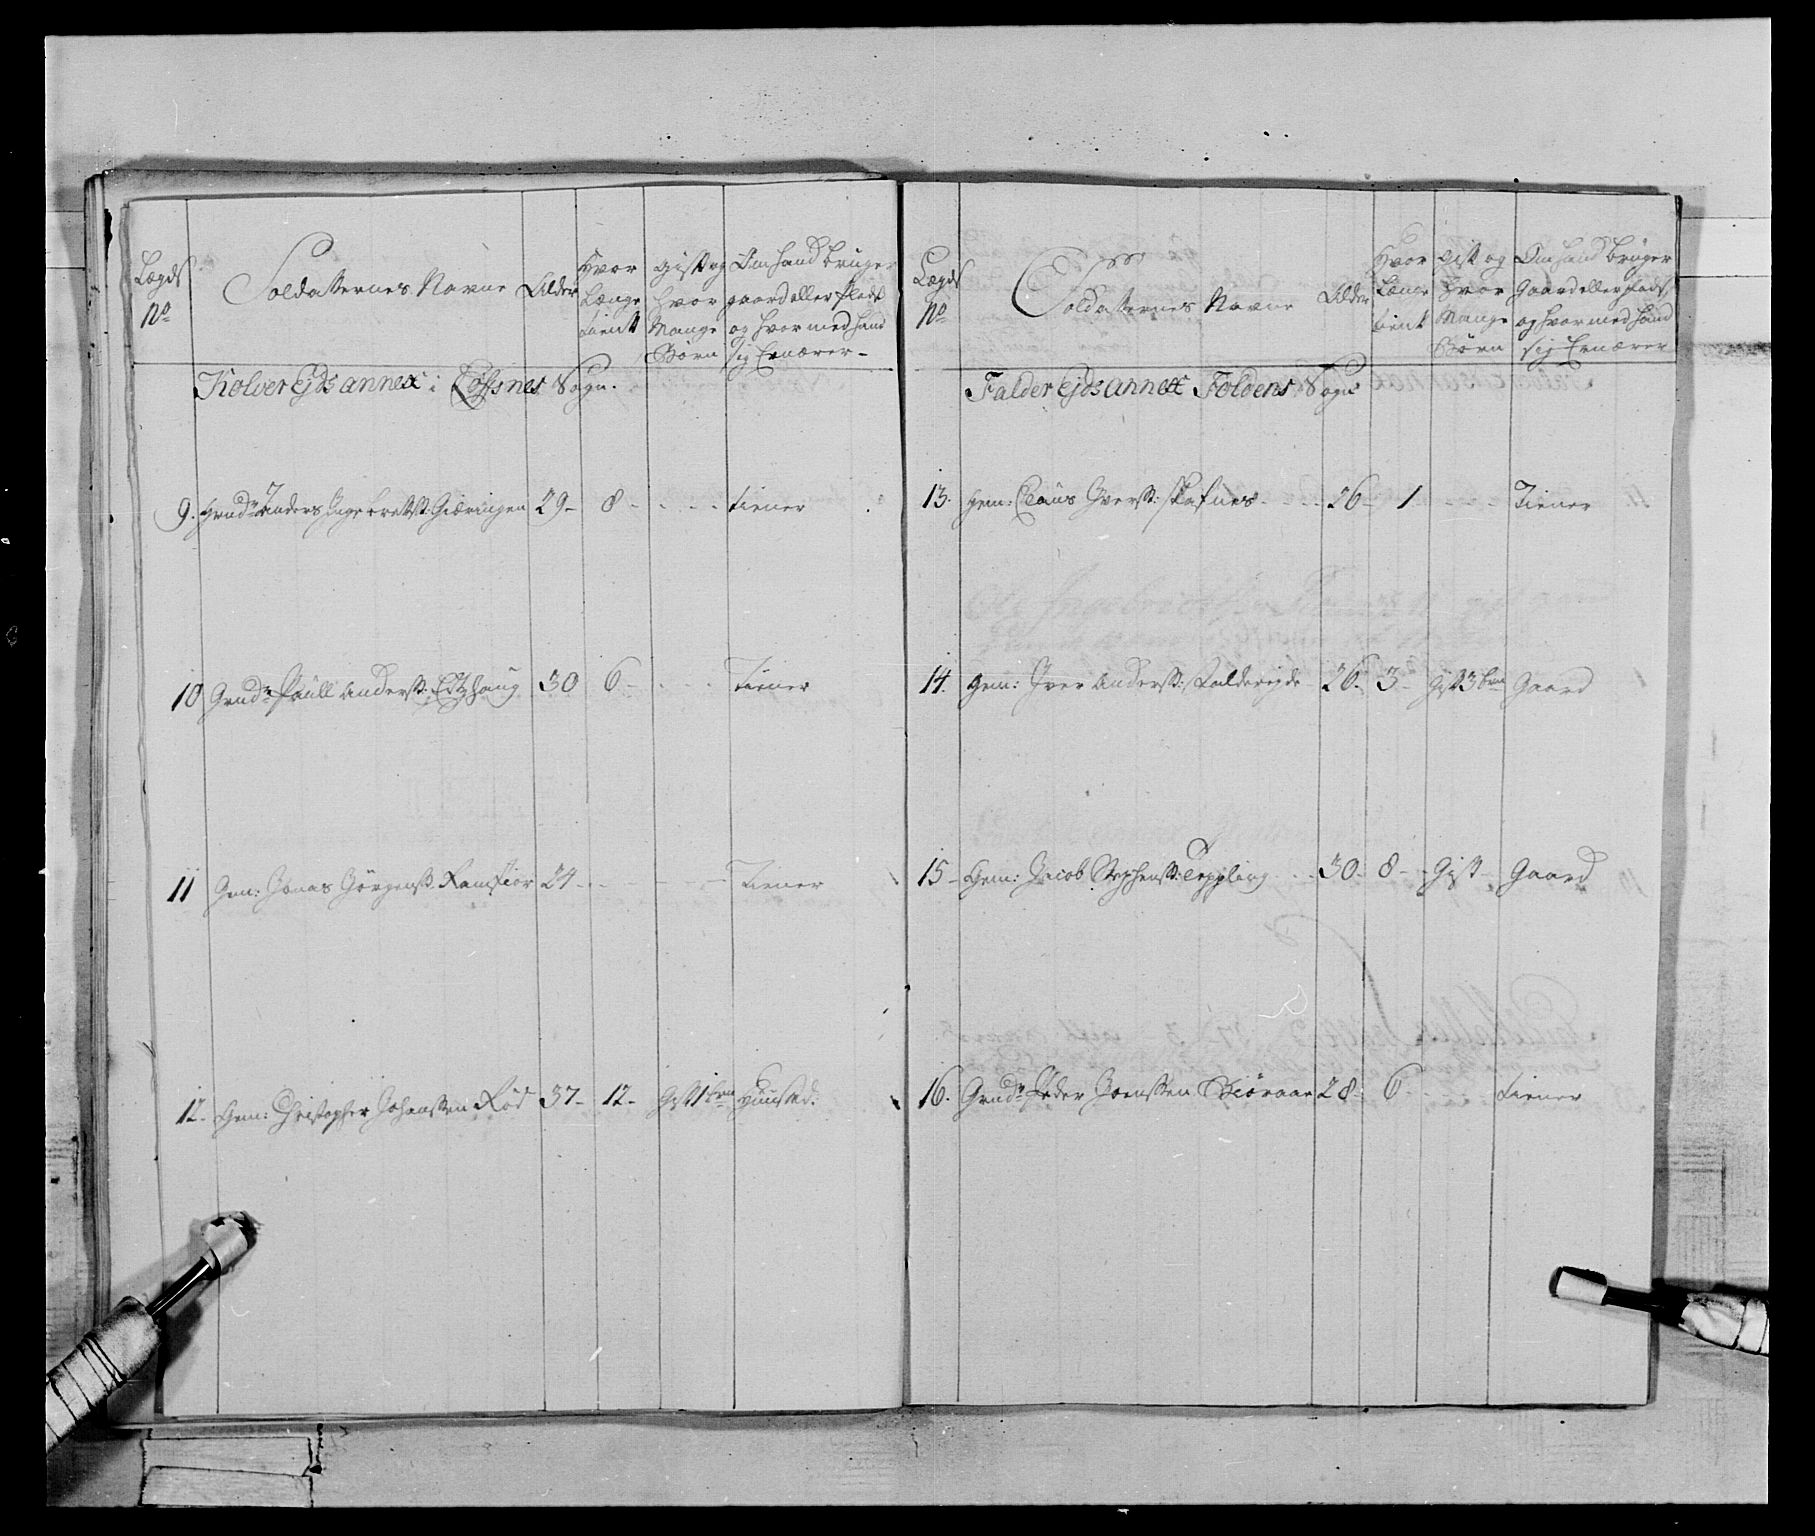 Lægds No
Soldatternes Navne
Alder
Hvor Længe tient
Gift og hvor Mange Børn
Om hand bruger gaard eller Plads og hvor med hand sig Ernærer
Kolver Ejds annex i Sogn.
9. Grudr Anders Ingebretst: Giæringen 29 8 tiener
10 Grudr Paull Anderst: 30 6 Tiener
11 Gem: Jonas Görgenst. Ramfior 24 Tiener
12. Gem: Christopher Johanssen Röd 37 12 Gift 1 brn Huusmd:
Lægds No
Soldatternes Navne
Alder
Hvor Længe tient
Gift og hvor Mange Børn
Om hand bruger Gaard eller plads og hvor med hand sig Ernærer
Falder Ejds annex Foldens Sogn
13. Gem: Claus Iverst: 26 1 Tiener
14. Gem: Iver Anderst: Falderejde 26 3 Gift 3 brn Gaard
15 Gem: Jacob Stephenst: Teppling 30 8 Gift Gaard
16. Grudr Peder Joenssen Biöraae 28 6 tiener